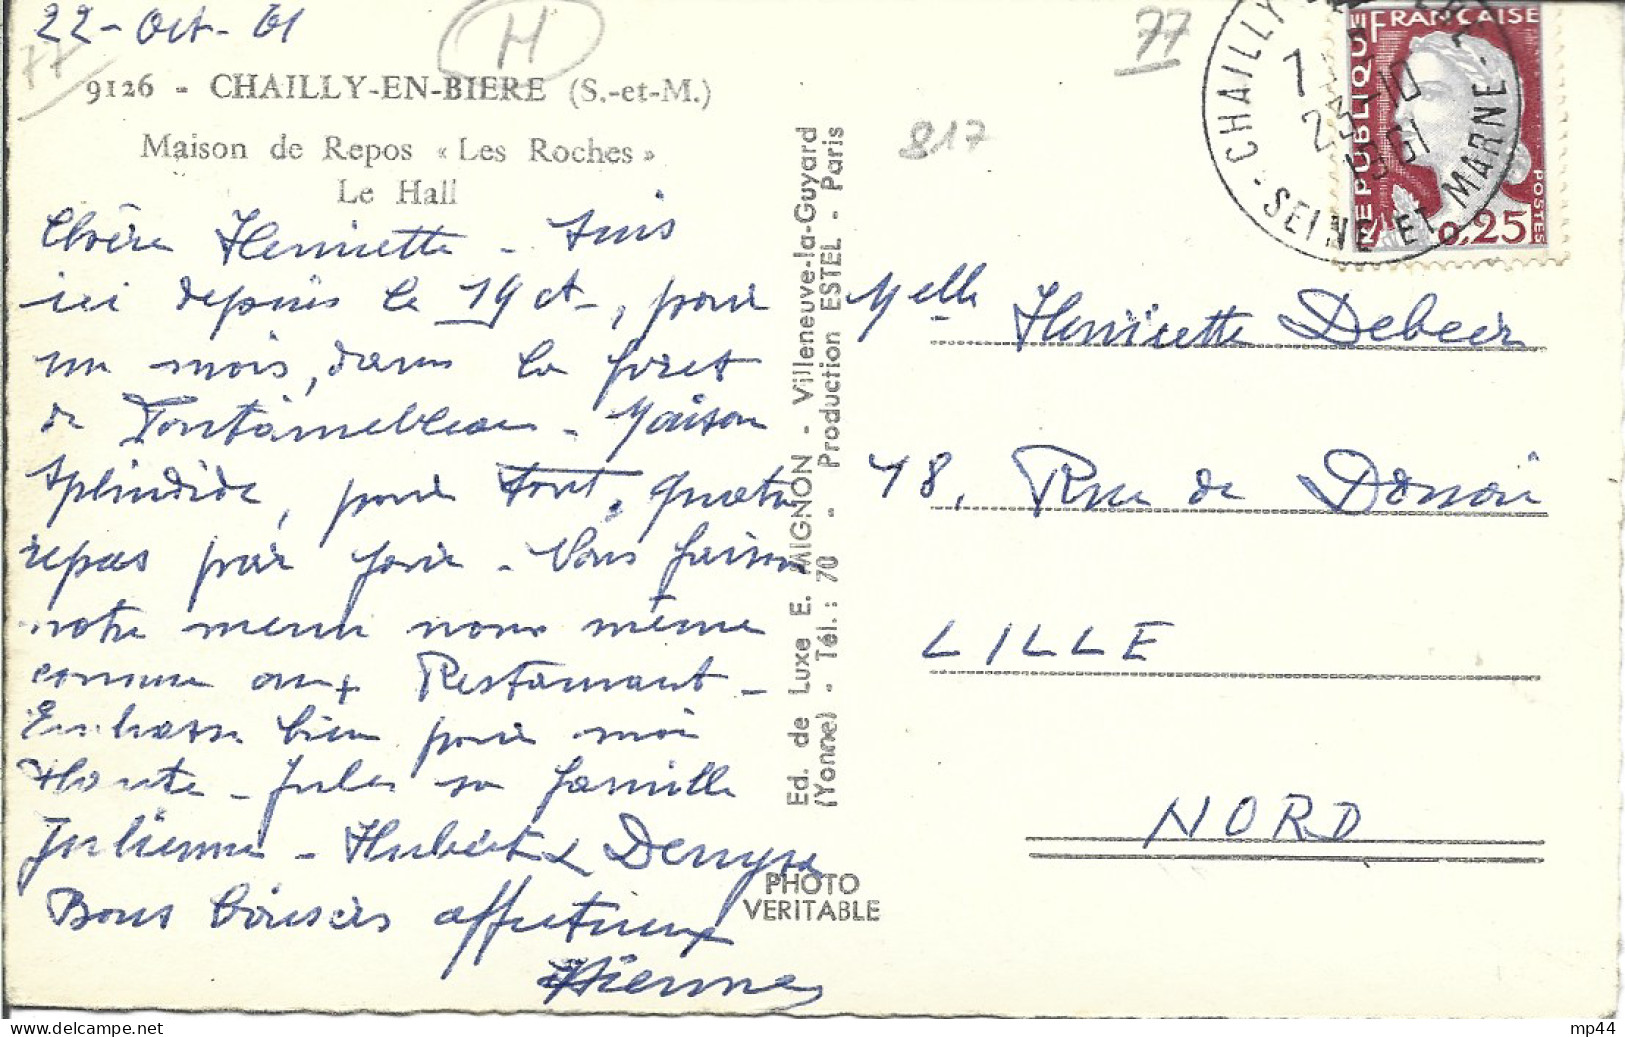 22-Oct-61
77
H
9126 - CHAILLY-EN-BIERE (S.-et-M.)
Maison de Repos « Les Roches »
Le Hall
Chère Henriette - Suis
ici depuis le 19 ct, pour
un mois, dans la foret
de Fontainebleau - Maison
splendide, pour tout, quatre
repas par jour - Nous faisons
notre menu nous même
comme aux Restaurant -
Embrasse bien pour moi
Jules sa famille
Julienne - Hubert & Denyse
Bons baisers affectueux
Ed. de Luxe E. MIGNON - Villeneuve-la-Guyard
(Yonne) - Tél. : 70 - Production ESTEL - Paris
PHOTO
VERITABLE
817
77
CHAILLY
7
23-10
1961
SEINE ET MARNE
REPUBLIQUE FRANÇAISE
0,25
POSTES
Melle Henriette
48, Rue de Douai
LILLE
NORD
mp44